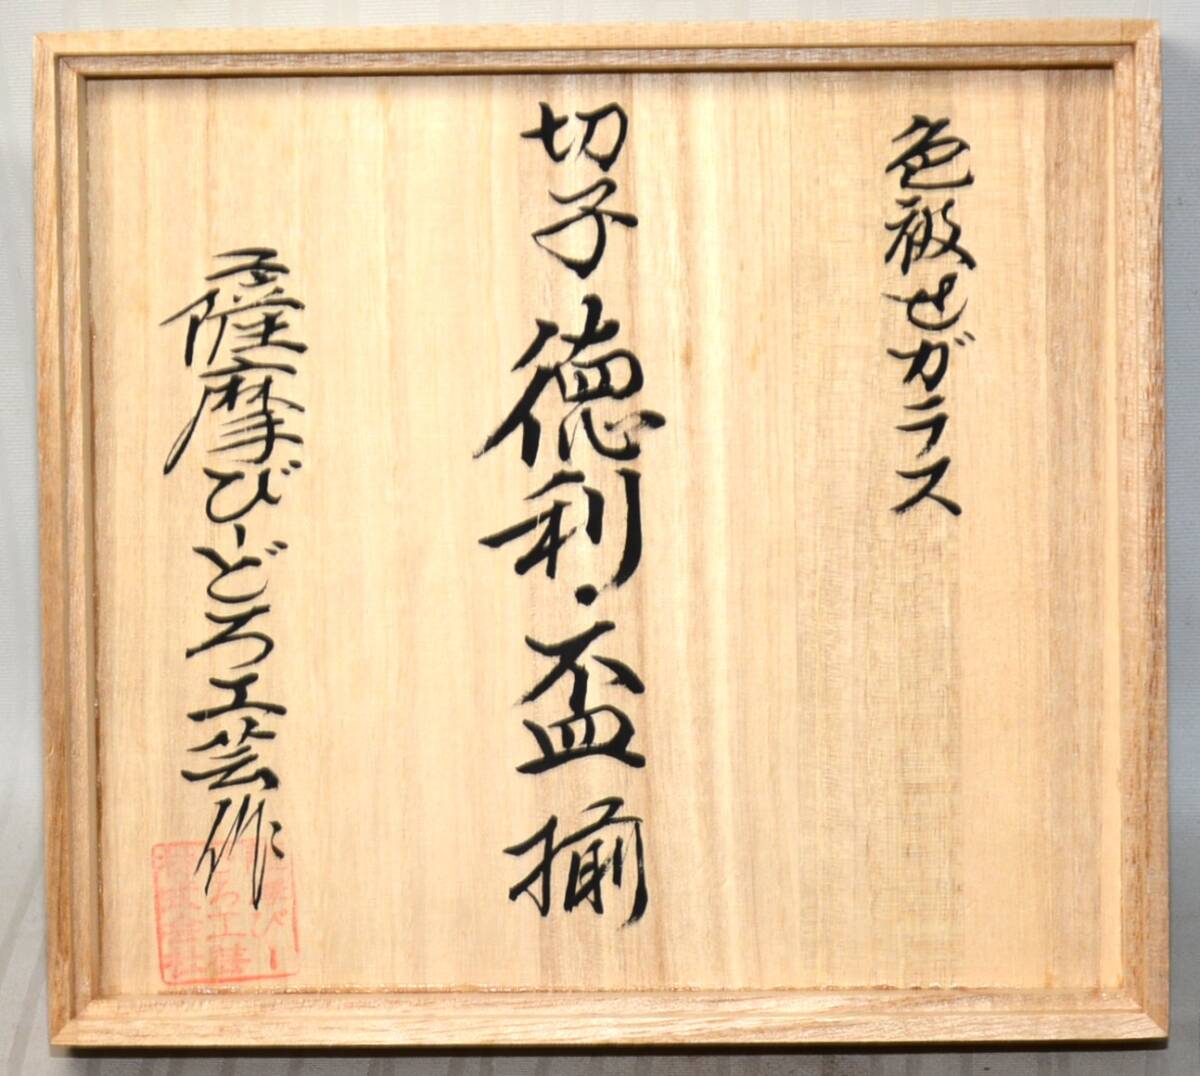 色被せガラス
切子徳利・盃揃
薩摩びーどろ工芸作
薩摩びー
どろ工芸
株式会社